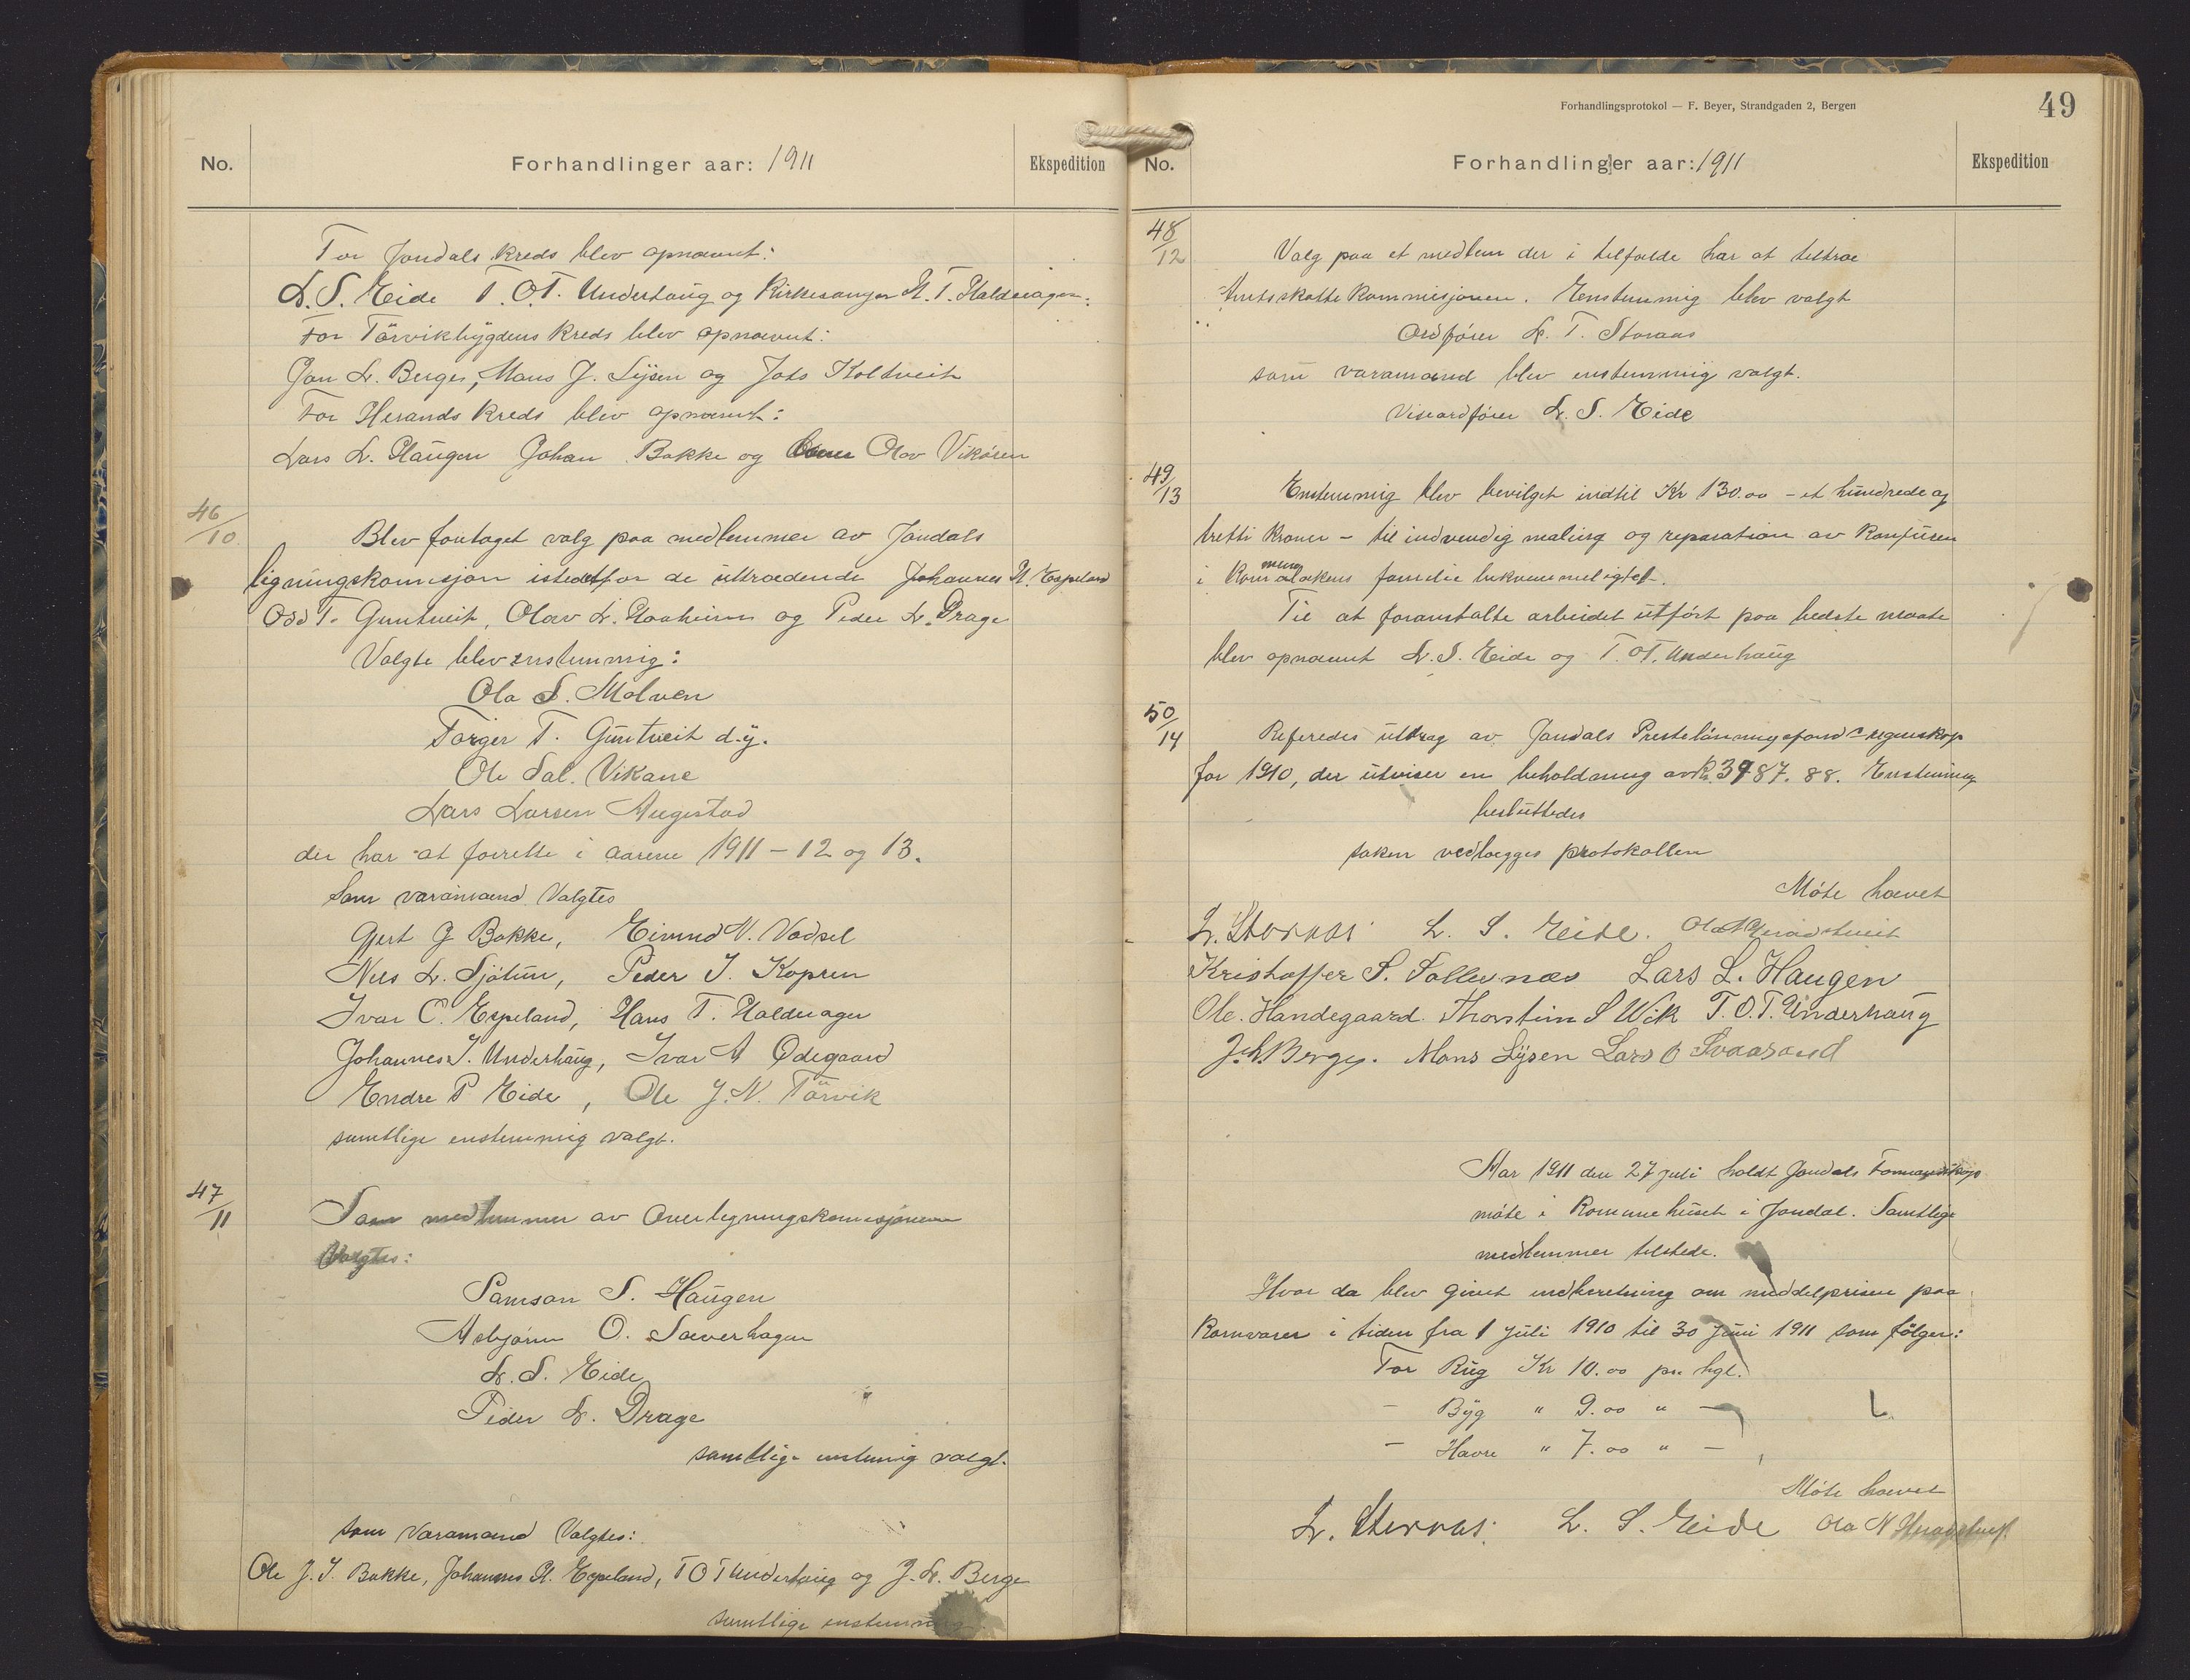 No.
Forhandlinger aar: 1911
Ekspedition
For Jondals kreds blev opnævnt:
L. S. Eide T. O. T. Underhaug og Kirkesanger H. T. Haldeiager.
For Törvikbygdens kreds blev opnævnt:
Jon L. Berge, Mons J. Lysen og Jots Koldveit
For Herands kreds blev opnævnt:
Lars L. Haugen Johan Bakke og Olav Vikören
46/10
Blev foretaget valg paa medlemmer av Jondals
ligningskomisjon istedetfor de uttrædende Johannes H. Espeland
Odd T. Guntveit, Olav L. Haaheim og Peder L. Drage
Valgte blev enstemmig:
Ola S. Molven
Torger T. Guntveit d.y.
Ole Sal. Vikane
Lars Larsen Augestad
der har at forrette i aarene 1911 - 12 og 13.
Som varamænd Valgtes
Gjert G Bakke, Eivind N. Vodsel
Nils L. Sjötun, Peder J. Kopren
Ivar C. Espeland, Hans T. Haldeiager
Johannes J. Underhaug, Ivar A Ødegaard
Endre P Eide, Ole J. N. Törvik
samtlige enstemmig valgt.
47/11
Som medlemmer av Overligningskomisjonen
Valgtes:
Samson S. Haugen
Asbjørn O. Sæverhagen
L. S. Eide
Peder L. Drage
samtlige enstemig valgt.
som Varamænd Valgtes:
Ole J. J. Bakke, Johannes H. Espeland, T O T Underhaug og J. L. Berge
samtlige enstemmig
Forhandlingsprotokol — F. Beyer, Strandgaden 2, Bergen
49
No.
Forhandlinger aar: 1911
Ekspedition
48/12
Valg paa et medlem der i tilfælde har at tiltræ
Amtsskattekommisjonen. Enstemmig blev valgt
Ordfører L. T. Storaas
som varamænd blev enstemmig valgt.
Viseordfører L. S. Eide
49/13
Enstemmig blev bevilget indtil Kr 130.00 - et hundrede og
tretti kroner - til indvendig maling og reparation av Komfuren
i Kommunalokens familie bekvemmelighet.
Til at foranstalte arbeidet utført paa bedste maate
blev opnævnt L. S. Eide og T. O. T. Underhaug
50/14
Referedes uttrag av Jondals Prestelönningsfond's regnskap
for 1910, der utviser en beholdning av Kr. 3987.88. Enstemmig
besluttedes
saken vedlægges protokollen
Møte hævet
L. Storaas. L. S. Eide.
Kristoffer S. Sollesnæs Lars L. Haugen
Ole. Handegaard. Thorstein S Wik T. O. T. Underhaug
J. L. Berge. Mons Lysen Lars O Svaasand
Aar 1911 den 27 juli holdt Jondals Formandskap
møte i Kommunehuset i Jondal. Samtlige
medlemmer tilstede.
Hvor da blev givet indberetning om middelprisen paa
Kornvarer i tiden fra 1 juli 1910 til 30 juni 1911 som følger:
For Rug Kr 10.00 pr. hgl.
- Byg " 9.00 " -
- Havre " 7.00 " -
Møte hævet
L. Storaas. L. S. Eide Ola N